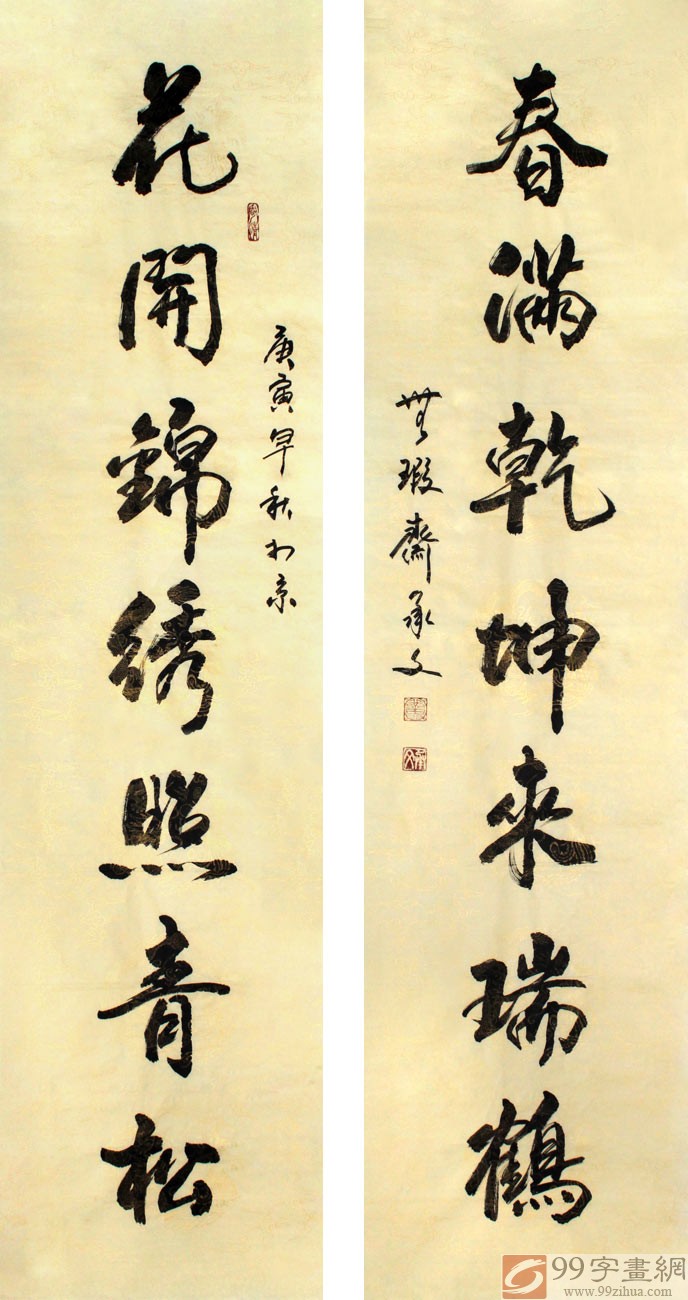 春滿乾坤來瑞鶴
無瑕齋承文
庚寅早秋於京
花開錦綉照青松
99字畫網
www.99zihua.com